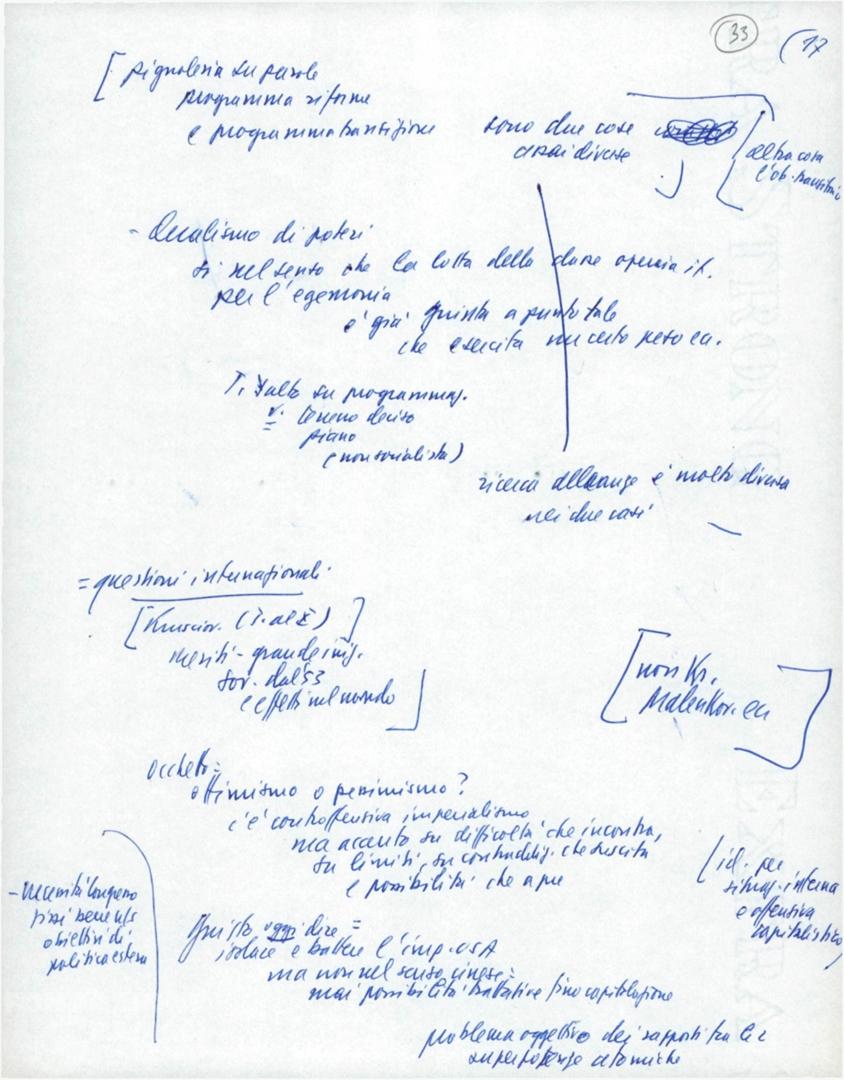 33
(17
[ pignoleria su parole
programma riforme
e programma transizione
sono due cose
assai diverse
altra cosa
l'ob. transitorio
- Dualismo di poteri
si nel senso che la lotta della classe operaia it.
per l'egemonia
è già giunta a punto tale
che esercita un certo peso ecc.
T. salto su programmaz.
v. terreno deciso
piano
(non socialista)
ricerca alleanze è molto diversa
nei due casi
= questioni internazionali
[Krusciov.
meriti - grande iniz.
sov. dal 53
e effetti nel mondo ]
[ non Kr.
Malenkov. ecc ]
Occhetto =
ottimismo o pessimismo?
c'è controffensiva imperialismo
ma accento su difficoltà che incontra,
su limiti, su contraddiz. che suscita
e possibilità che apre
[id. per
situaz. interna
e offensiva
capitalistica]
- necessità Longo
obiettivi di
politica estera
Giusto oggi dire =
isolare e battere l'imp. USA
ma non nel senso cinese =
mai possibilità trattative fino capitolazione
problema oggettivo dei rapporti tra le 2
superpotenze atomiche